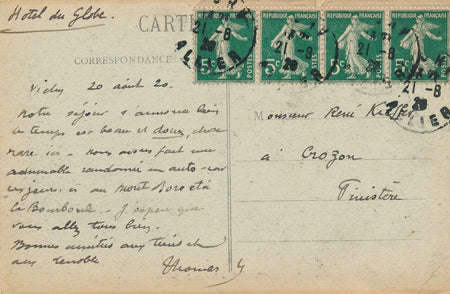 Hotel du Globe.
CARTE
CORRESPONDANCE
RÉPUBLIQUE FRANÇAISE RÉPUBLIQUE FRANÇAISE RÉPUBLIQUE FRANÇAISE RÉPUBLIQUE FRANÇAISE
5c 5c 5c 5c
POSTES POSTES POSTES POSTES
21-8
20
ALLIER
Vichy 20 août 20.
Notre séjour s'annonce bien
le temps est beau et doux, chose
rare ici. Nous avons fait une
admirable randonnée en auto-car
ces jours ci au Mont Dore et à
la Bourboule. J'espère que
vous allez tous bien.
Bonnes amitiés aux tiens et
aux
Thomas
Monsieur René
à Crozon
Finistère